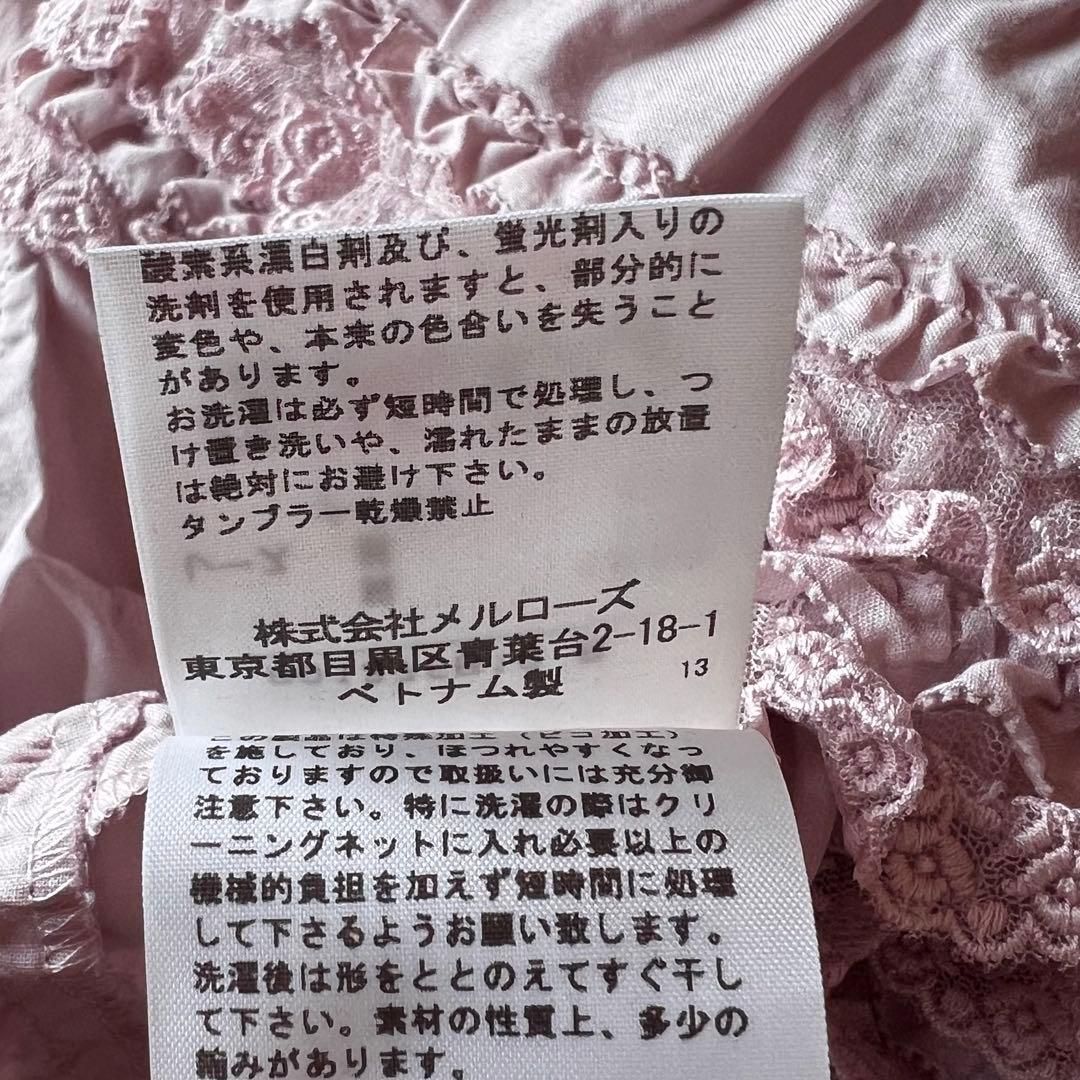 酸素系漂白剤及び、蛍光剤入りの
洗剤を使用されますと、部分的に
変色や、本来の色合いを失うこと
があります。
お洗濯は必ず短時間で処理し、つ
け置き洗いや、濡れたままの放置
は絶対にお避け下さい。
タンブラー乾燥禁止
株式会社メルローズ
東京都目黒区青葉台2-18-1
ベトナム製
13
この製品は特殊加工(ピコ加工)
を施しており、ほつれやすくなっ
ておりますので取扱いには充分御
注意下さい。特に洗濯の際はクリ
ーニングネットに入れ必要以上の
機械的負担を加えず短時間に処理
して下さるようお願い致します。
洗濯後は形をととのえてすぐ干し
て下さい。素材の性質上、多少の
縮みがあります。